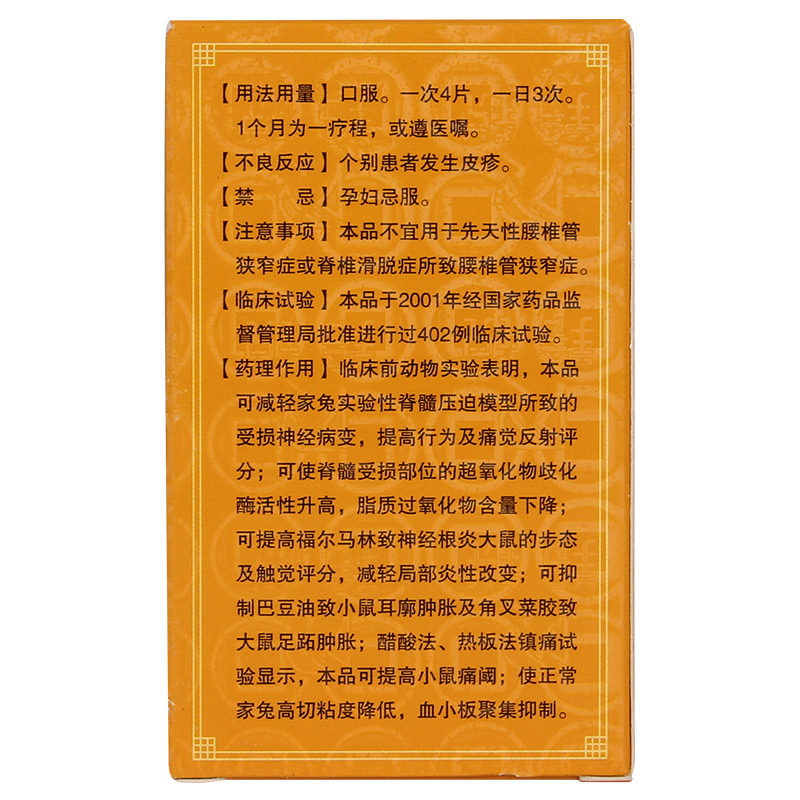 【用法用量】口服。一次4片，一日3次。
1个月为一疗程，或遵医嘱。
【不良反应】个别患者发生皮疹。
【禁　　忌】孕妇忌服。
【注意事项】本品不宜用于先天性腰椎管
狭窄症或脊椎滑脱症所致腰椎管狭窄症。
【临床试验】本品于2001年经国家药品监
督管理局批准进行过402例临床试验。
【药理作用】临床前动物实验表明，本品
可减轻家兔实验性脊髓压迫模型所致的
受损神经病变，提高行为及痛觉反射评
分；可使脊髓受损部位的超氧化物歧化
酶活性升高，脂质过氧化物含量下降；
可提高福尔马林致神经根炎大鼠的步态
及触觉评分，减轻局部炎性改变；可抑
制巴豆油致小鼠耳廓肿胀及角叉菜胶致
大鼠足跖肿胀；醋酸法、热板法镇痛试
验显示，本品可提高小鼠痛阈；使正常
家兔高切粘度降低，血小板聚集抑制。